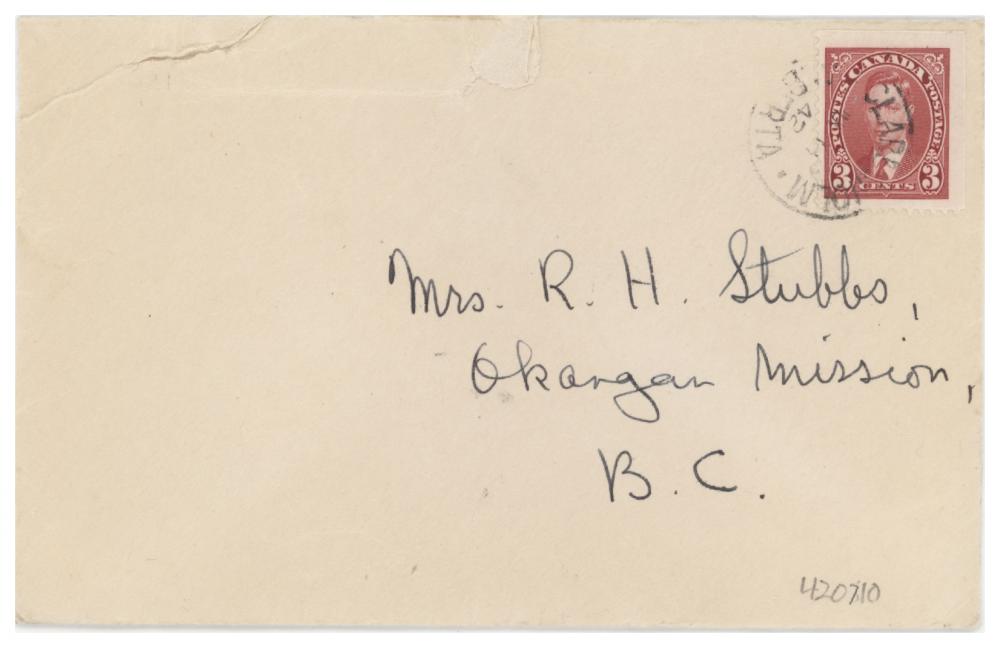 POSTES CANADA POSTAGE
3 CENTS 3
RTA.
Mrs. R. H. Stubbs,
Okanagan Mission,
B. C.
420710